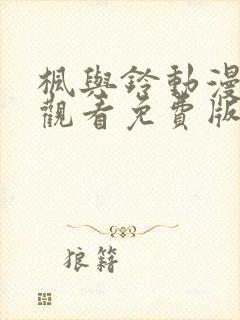 楓與鈴動漫
觀看免費版
狼籍